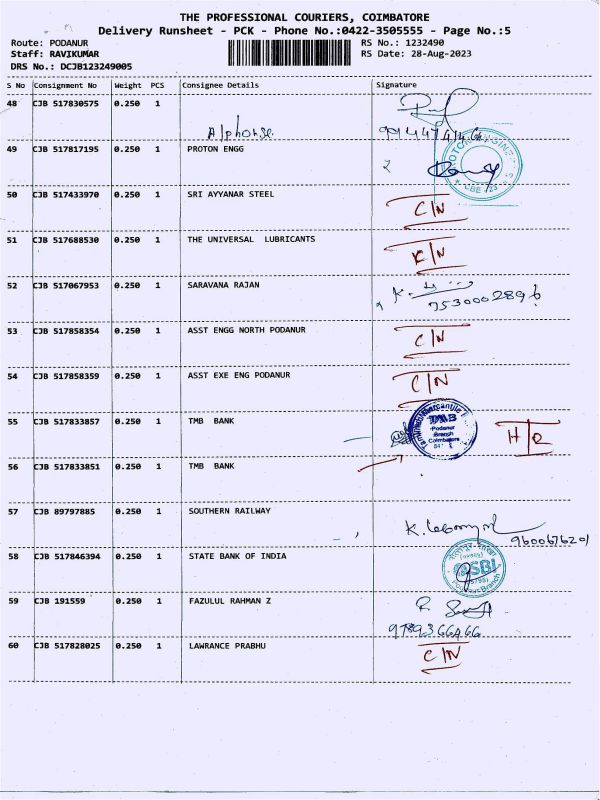 THE PROFESSIONAL COURIERS, COIMBATORE
Delivery Runsheet - PCK - Phone No.:0422-3505555 - Page No.:5
Route: PODANUR RS No.: 1232490
Staff: RAVIKUMAR RS Date: 28-Aug-2023
DRS No.: DCJB123249005
S No Consignment No Weight PCS Consignee Details Signature
48 CJB 517830575 0.250 1
Alphonse
49 CJB 517817195 0.250 1 PROTON ENGG
50 CJB 517433970 0.250 1 SRI AYYANAR STEEL
C/N
51 CJB 517688530 0.250 1 THE UNIVERSAL LUBRICANTS
K/N
52 CJB 517067953 0.250 1 SARAVANA RAJAN
7530002896
53 CJB 517858354 0.250 1 ASST ENGG NORTH PODANUR
C/N
54 CJB 517858359 0.250 1 ASST EXE ENG PODANUR
C/N
55 CJB 517833857 0.250 1 TMB BANK
TMB
Podanur
Branch
Coimbatore
56 CJB 517833851 0.250 1 TMB BANK
57 CJB 89797885 0.250 1 SOUTHERN RAILWAY
9600676201
58 CJB 517846394 0.250 1 STATE BANK OF INDIA
SBI
59 CJB 191559 0.250 1 FAZULUL RAHMAN Z
9789366466
60 CJB 517828025 0.250 1 LAWRANCE PRABHU
C/N